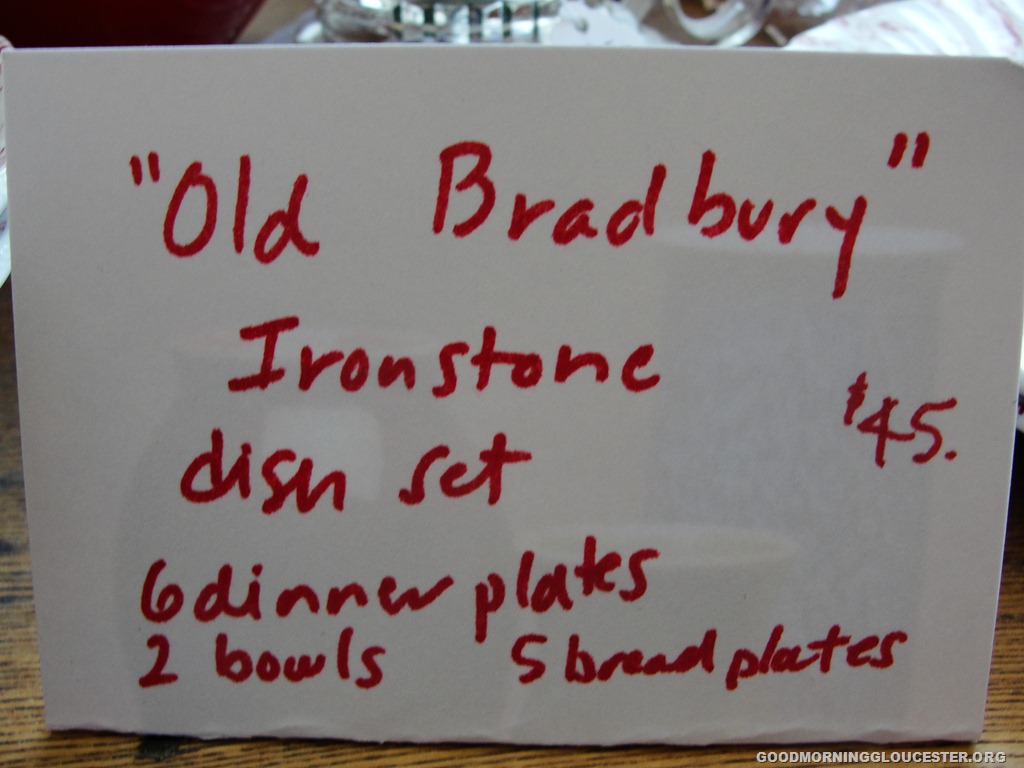 "Old Bradbury"
Ironstone
$45.
dish set
6 dinner plates
2 bowls 5 bread plates
GOODMORNINGGLOUCESTER.ORG